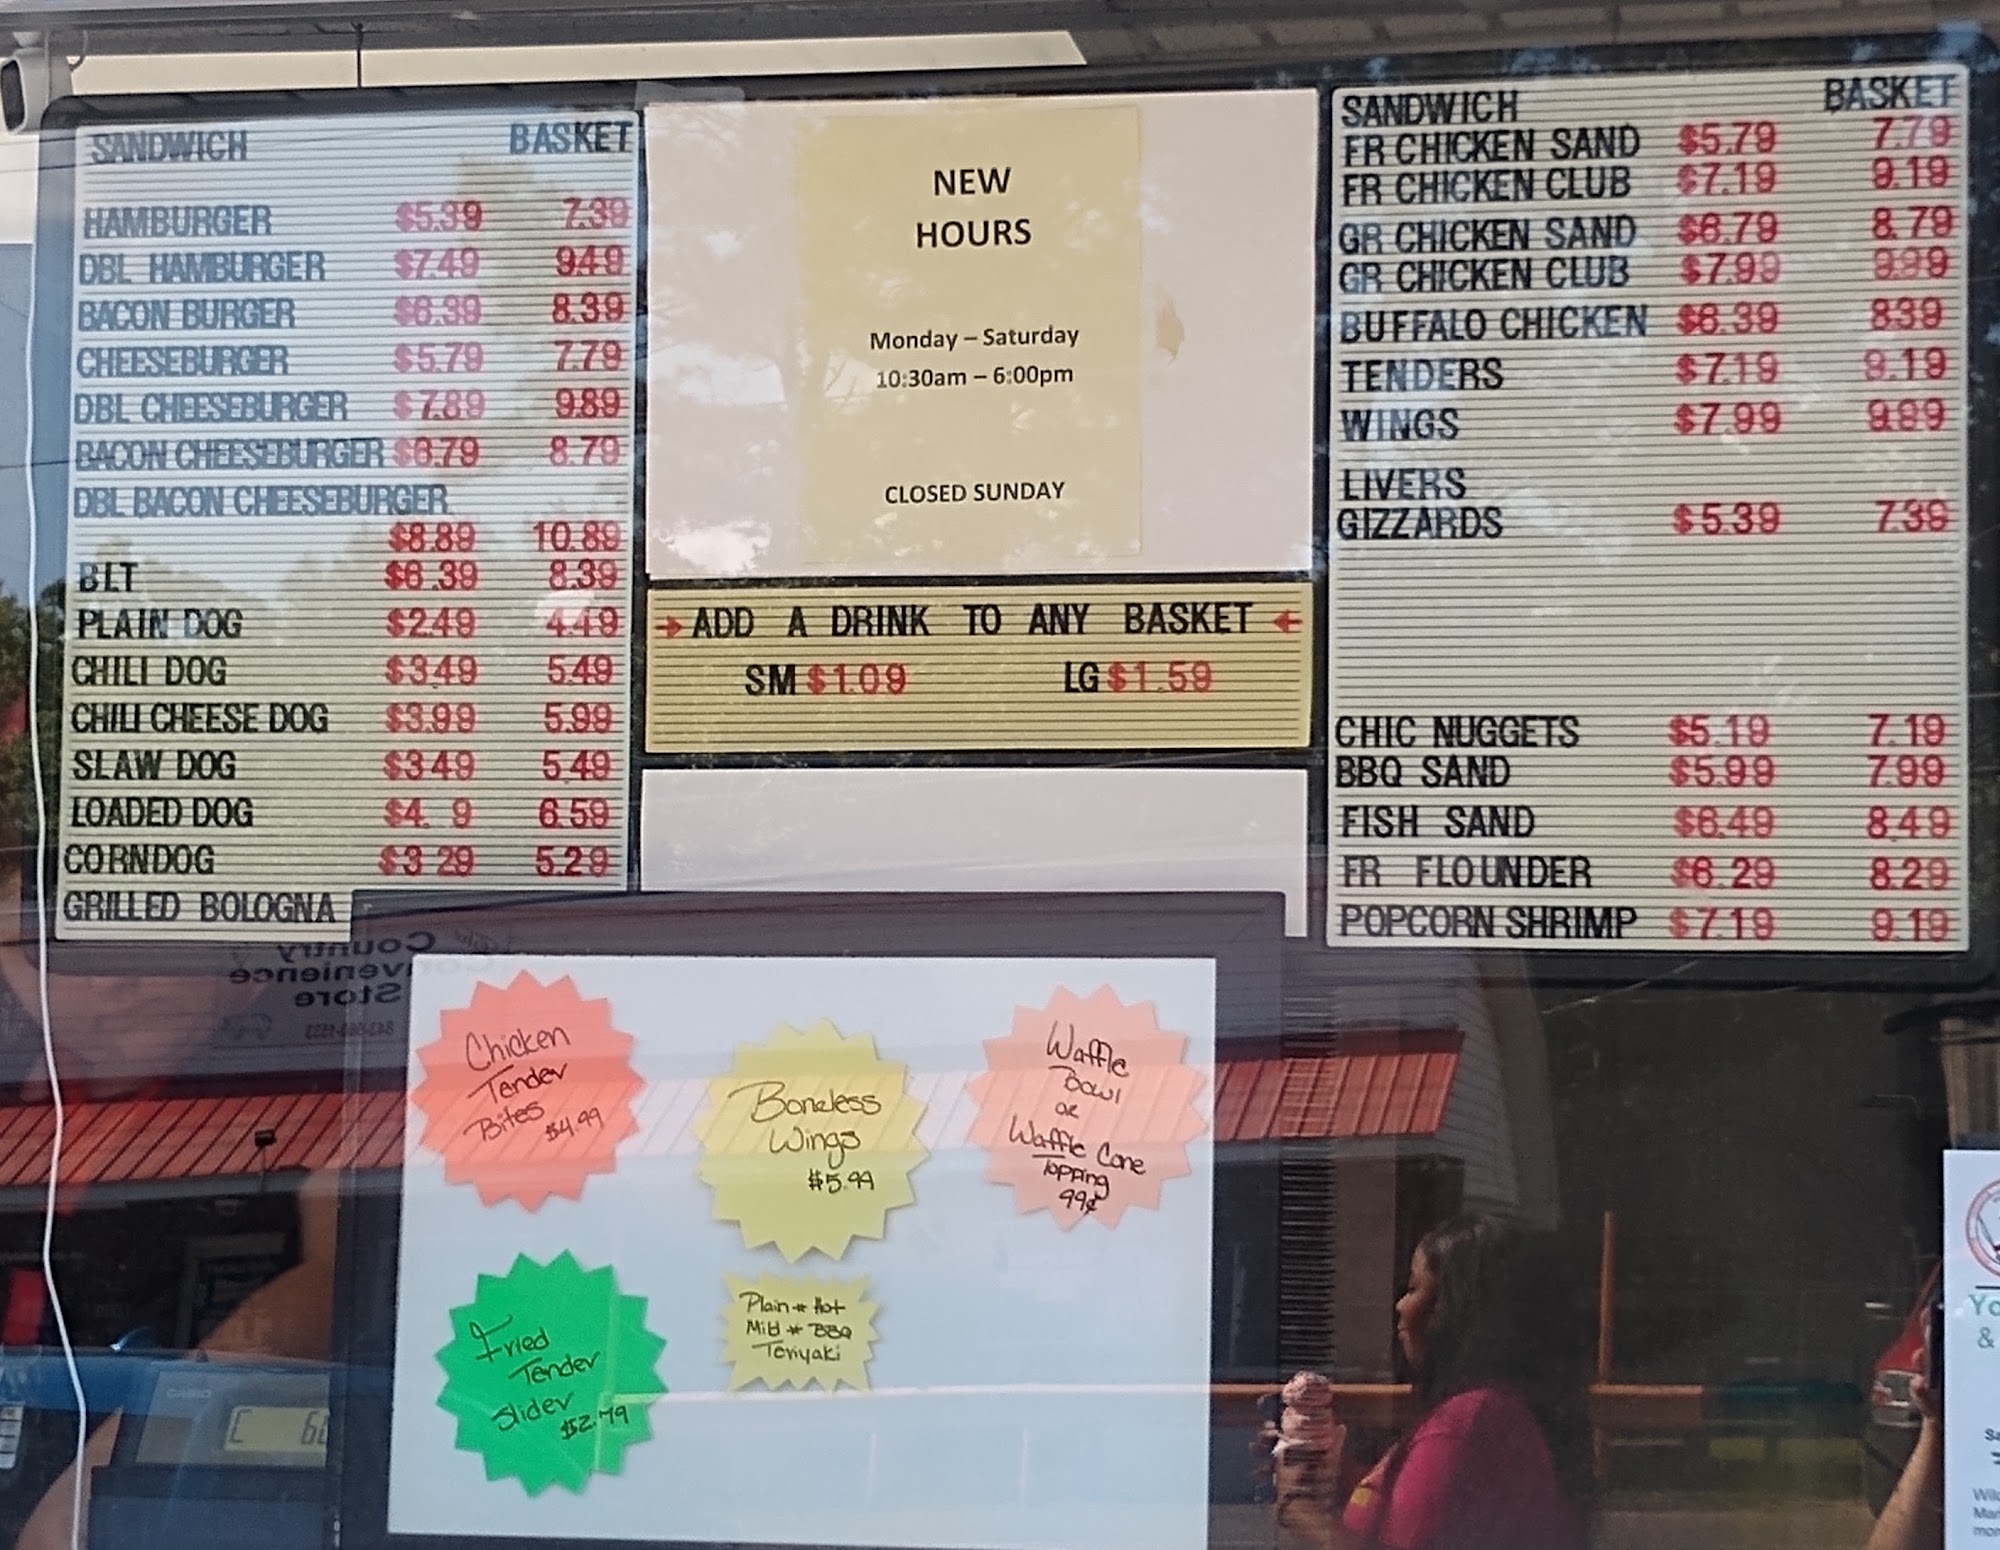 SANDWICH BASKET
HAMBURGER $5.39 7.39
DBL HAMBURGER $7.49 949
BACON BURGER $6.39 8.39
CHEESEBURGER $5.79 7.79
DBL CHEESEBURGER $7.89 9.89
BACON CHEESEBURGER $6.79 8.79
DBL BACON CHEESEBURGER
$8.89 10.89
BLT $6.39 8.39
PLAIN DOG $2.49 4.49
CHILI DOG $3.49 5.49
CHILI CHEESE DOG $3.99 5.99
SLAW DOG $3 49 5.49
LOADED DOG $4. 9 6.59
CORNDOG $3 29 5.29
GRILLED BOLOGNA
NEW
HOURS
Monday – Saturday
10:30am – 6:00pm
CLOSED SUNDAY
→ ADD A DRINK TO ANY BASKET ←
SM $1.09 LG $1.59
SANDWICH BASKET
FR CHICKEN SAND $5.79 7.79
FR CHICKEN CLUB $7.19 9.19
GR CHICKEN SAND $6.79 8.79
GR CHICKEN CLUB $7.99 9.99
BUFFALO CHICKEN $6.39 839
TENDERS $7.19 9.19
WINGS $7.99 9.99
LIVERS
GIZZARDS $5.39 7.39
CHIC NUGGETS $5.19 7.19
BBQ SAND $5.99 7.99
FISH SAND $6.49 8.49
FR FLOUNDER $6.29 8.29
POPCORN SHRIMP $7.19 9.19
Country
Convenience
Store
Chicken
Tender
Bites $4.99
Boneless
Wings
$5.99
Waffle
Bowl
or
Waffle Cone
Topping
99¢
Fried
Tender
Slider
$2.79
Plain * Hot
Mild * BBQ
Teriyaki
CASIO
Yo
&